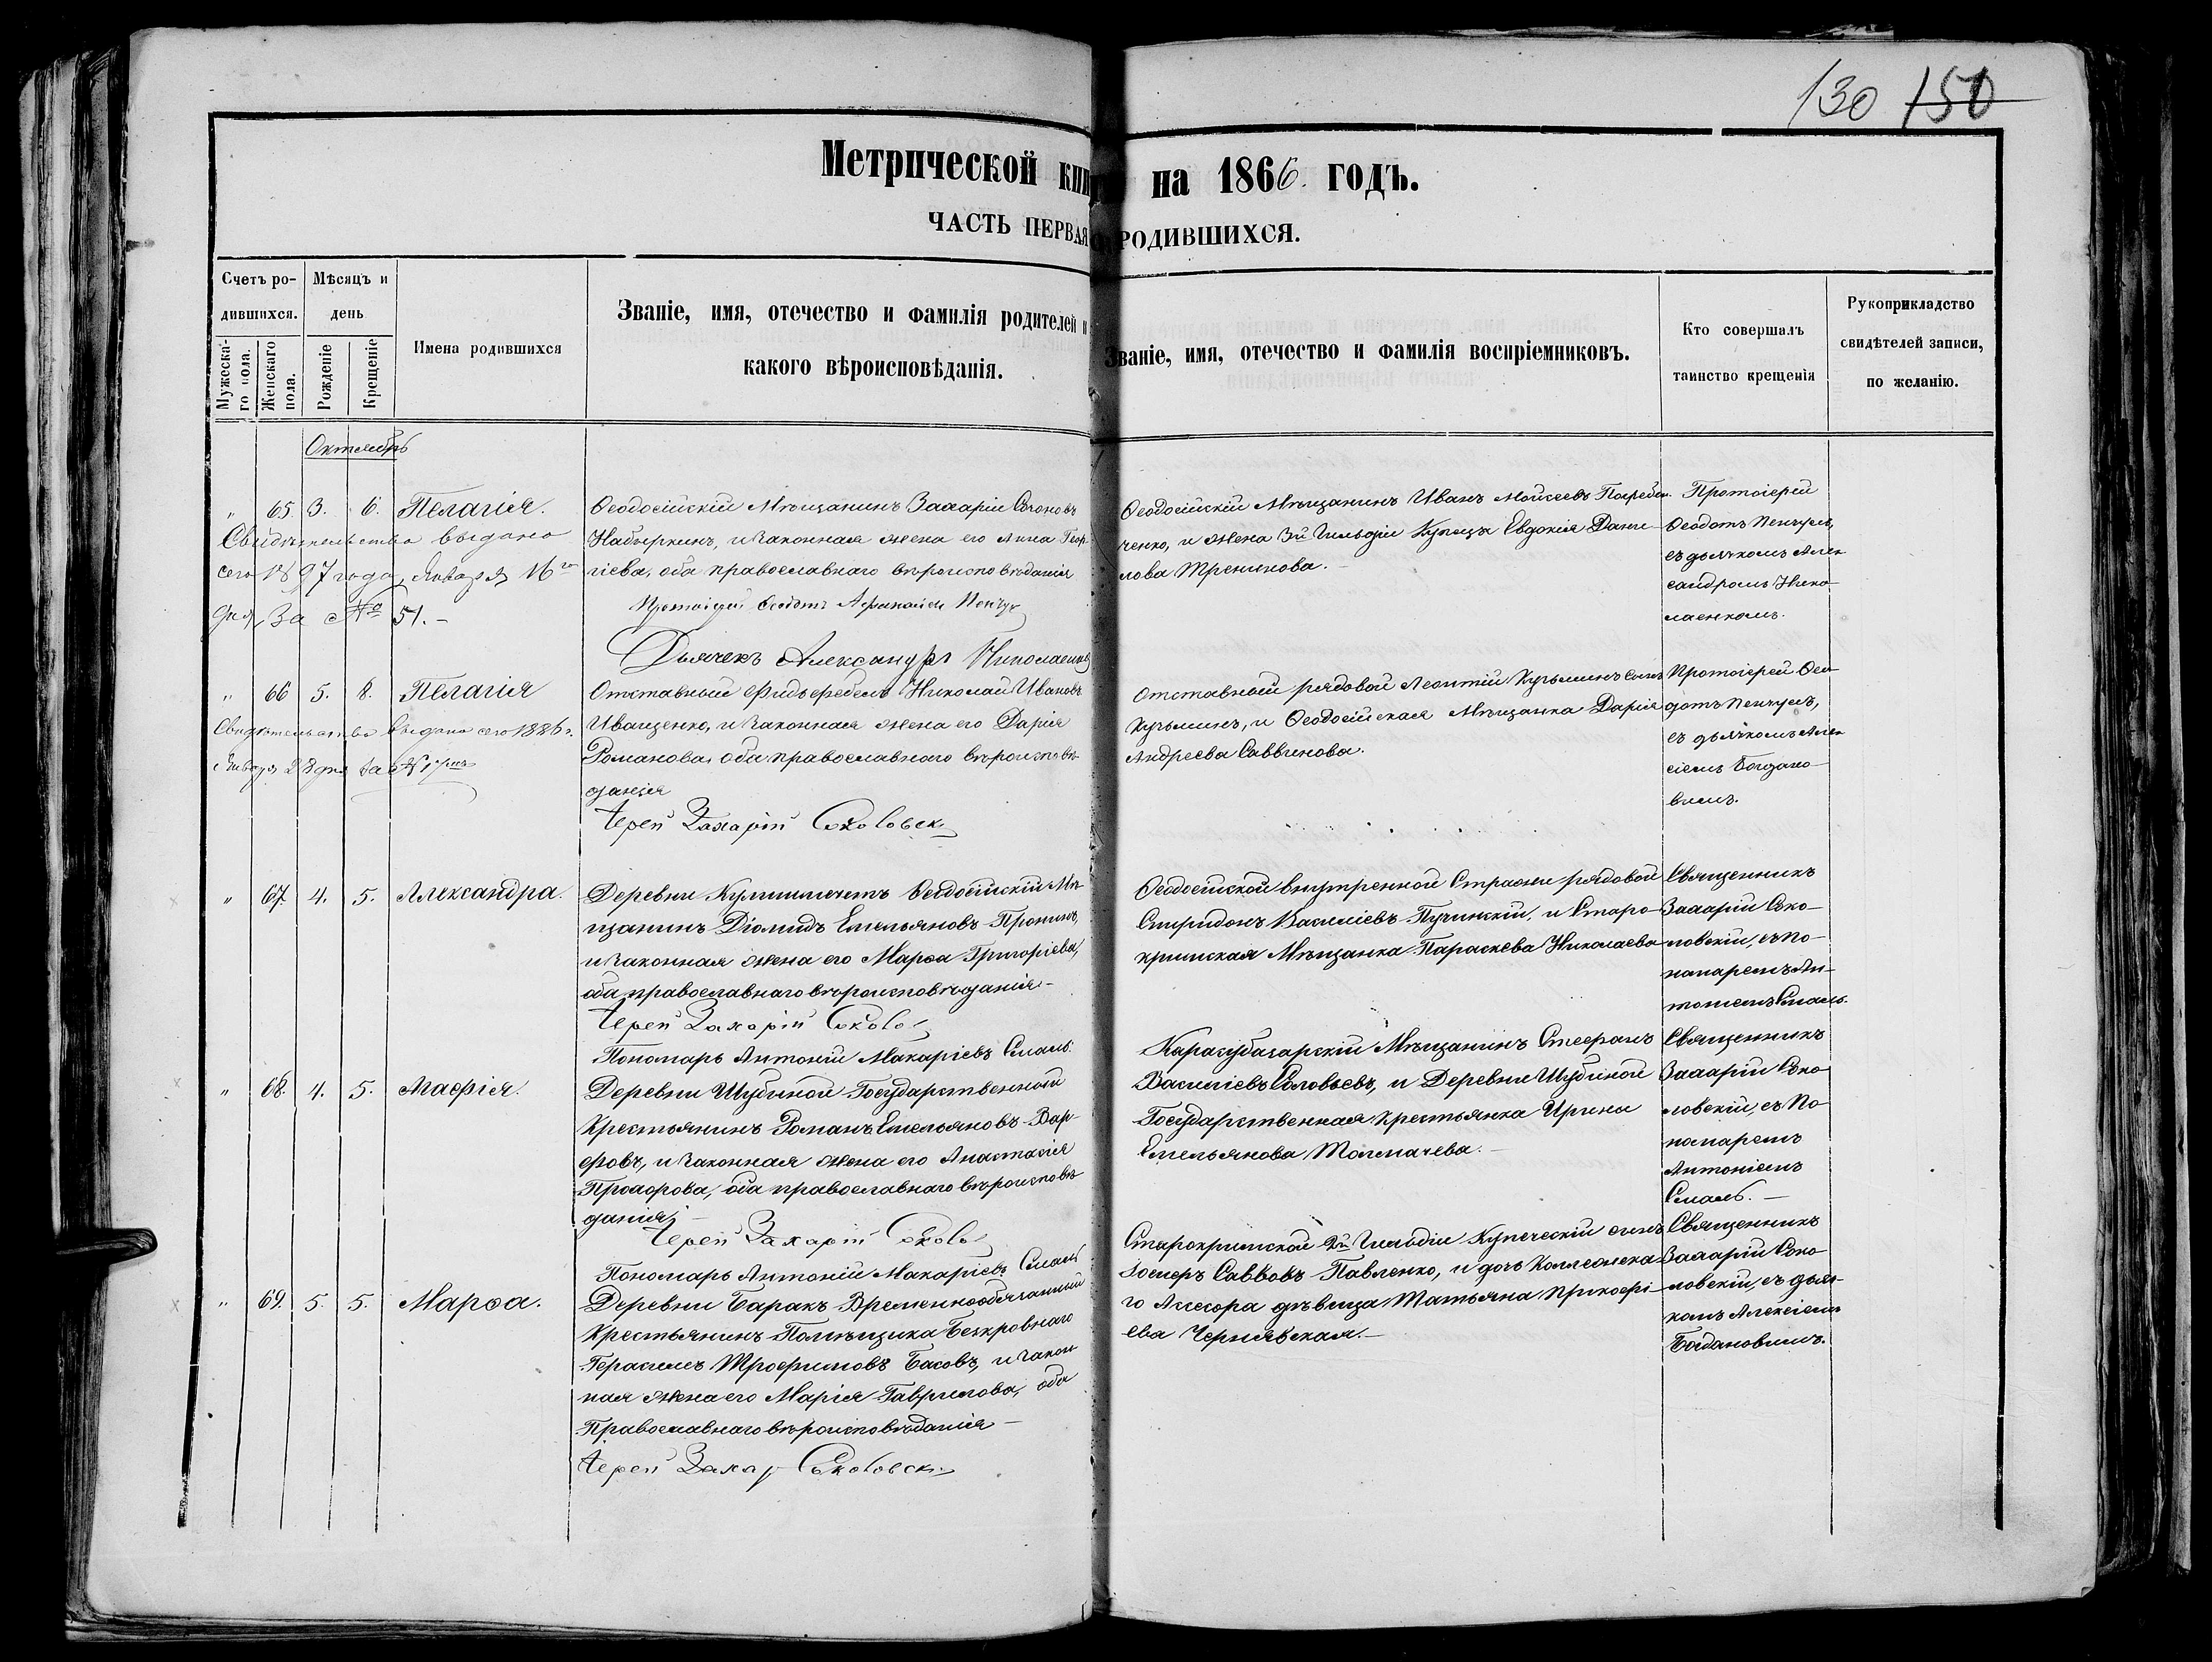 130 150
Метрической книги на 1866. годъ.
ЧАСТЬ ПЕРВАЯ О РОДИВШИХСЯ.
Счетъ ро-
дившихся.
Мужеска-
го пола.
Женскаго
пола.
Мѣсяцъ и
день
Рожденіе
Крещеніе
Имена родившихся
Званіе, имя, отечество и фамилія родителей и
какого вѣроисповѣданія.
Званіе, имя, отечество и фамилія воспріемниковъ.
Кто совершалъ
таинство крещенія
Рукоприкладство
свидѣтелей записи,
по желанію.
Октябрь
„ 65. 3. 6. Пелагія.
Свидѣтельство выдано
сего 1897 года, Января 16го
дня за № 51.-
Ѳеодосійскій Мѣщанинъ Захарій Созоновъ
Набиркинъ, и законная жена его Анна Геор-
гіева, оба православнаго вѣроисповѣданія
Протоіерей Ѳеодотъ
Дьячекъ Александръ Николаенко
Ѳеодосійскій Мѣщанинъ Иванъ Моисеевъ
ченко, и жена 3й Гильдіи Купца Евдокія Дани-
лова Тренинова.
Протоіерей
Ѳеодотъ Пенчулъ,
съ дьячкомъ Алек-
сандромъ Нико-
лаенкомъ.
„ 66 5. 8. Пелагія
Свидѣтельство выдано сего 1886 г.
Января 28 дня за №
Отставный Фидьфебель Николай Ивановъ
Иващенко, и законная жена его Дарія
Романова, оба православнаго вѣроисповѣ-
данія
Іерей Захарій Соколовск
Отставный рядовой Леонтій Кузьминъ сынъ
Кузьминъ, и Ѳеодосійская Мѣщанка Дарія
Андреева Саввинова.
Протоіерей Ѳео-
дотъ Пенчулъ,
съ дьячкомъ Алек
сіемъ Богдано-
вимъ.
„ 67. 4. 5. Александра.
Деревни Ѳеодосійскій Мѣ-
щанинъ Діомидъ Емельяновъ Пронинъ,
и законная жена его Марѳа Григорьева,
оба православнаго вѣроисповѣданія-
Іерей Захарій Соколо
Пономарь Антоній Макаріевъ Смаль.
Ѳеодосійской внутренной Стражи рядовой
Спиридонъ Василіевъ Пузинскій, и Старо-
крымская Мѣщанка Параскева Николаева
Священникъ
Захарій Соко-
ловскій, съ По-
намаремъ Ан-
тоніемъ Смаль.
„ 68. 4. 5. Агафія.
Деревни Шубиной Государственный
Крестьянинъ Романъ Емельяновъ
и законная жена его Анастасія
Прохорова, оба православнаго вѣроисповѣ
данія
Іерей Захарій Соколо
Пономарь Антоній Макаріевъ Смаль
Карасубазарскій Мѣщанинъ Стефанъ
Василіевъ Соловьевъ, и Деревни Шубиной
Государственная Крестьянка Ирина
Емельянова Толмачева.-
Священникъ
Захарій Соко-
ловскій, съ По-
намаремъ
Антоніемъ
Смаль.-
„ 69. 5. 5. Марѳа.
Деревни Баракъ Временнообязанный
Крестьянинъ Помѣщика Безкровнаго
Герасимъ Трофимовъ Басовъ, и закон
ная жена его Марія Гаврилова, оба
Православнаго вѣроисповѣданія-
Іерей Захар Соколовск
Старокримской 2й Гильдіи Купеческій сынъ
Савковъ Павленко, и дочь Коллежска-
го Ассесора дѣвица Татьяна Прокофі-
ева Чернявская.-
Священникъ
Захарій Соко-
ловскій, съ дьяч-
комъ Алексіемъ
Богдановимъ.